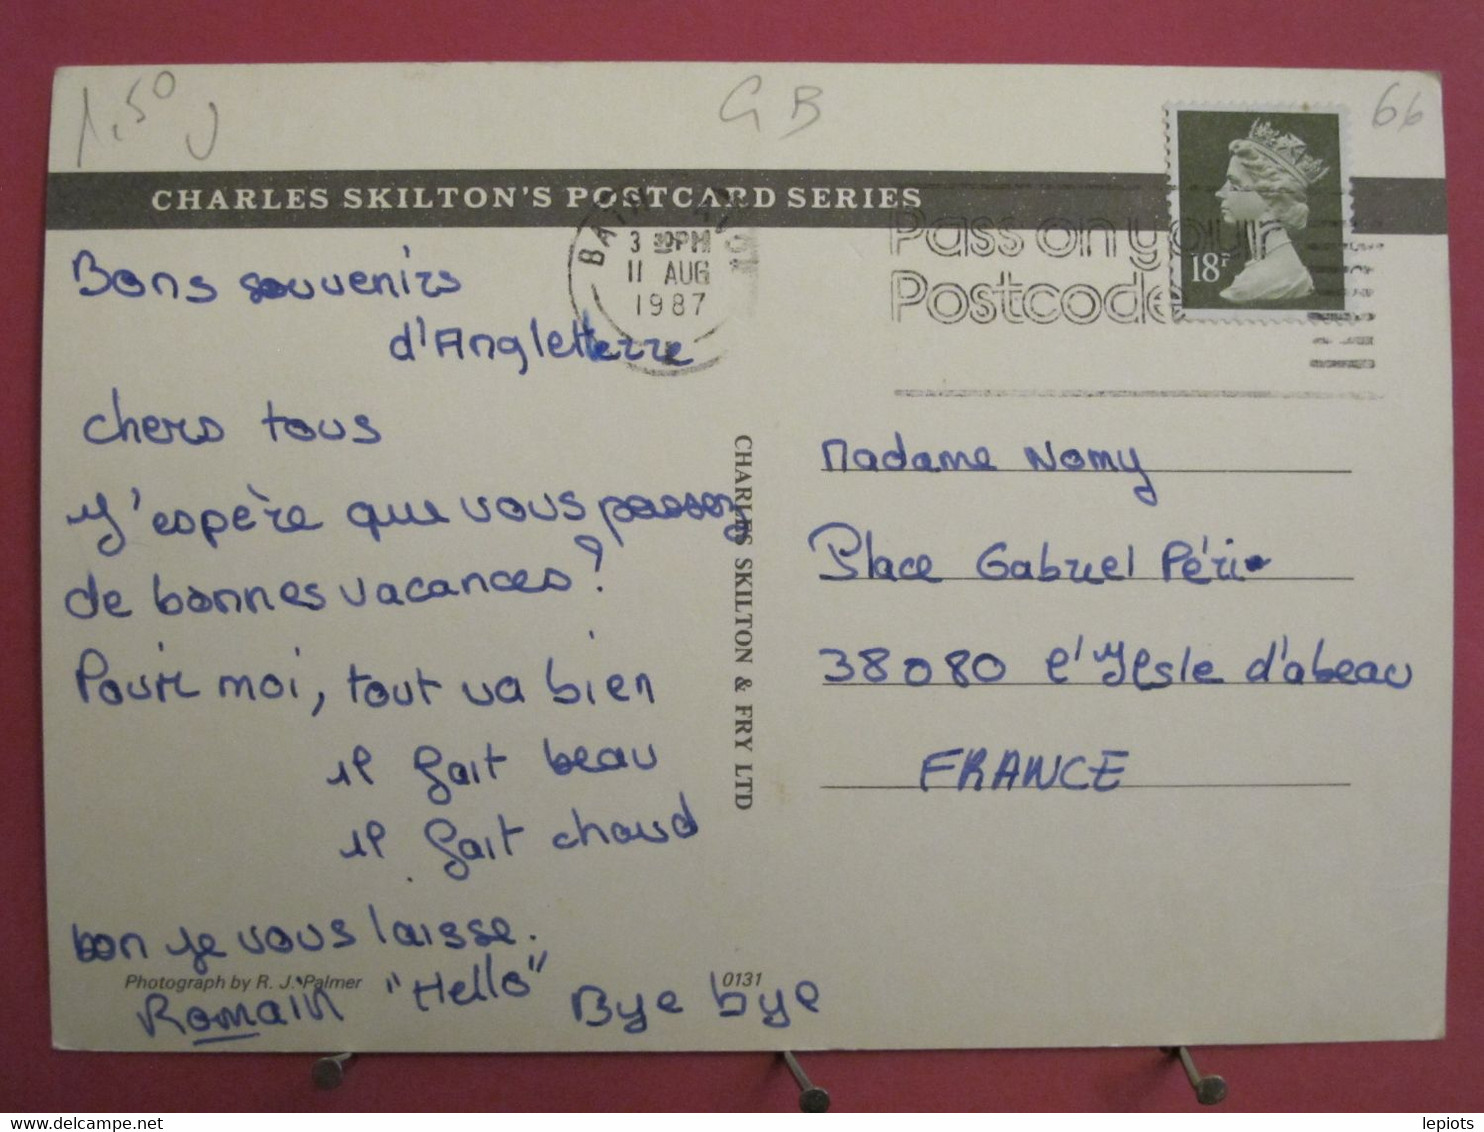 1,50
GB
66
CHARLES SKILTON'S POSTCARD SERIES
BATH AVON
3 30PM
11 AUG
1987
Pass on your
Postcode
18P
Bons souvenirs
d'Angletterre
chers tous
J'espère que vous passez
de bonnes vacances?
Pour moi, tout va bien
il fait beau
il fait chaud
bon je vous laisse.
Photograph by R. J. Palmer
0131
Romain "Hello" Bye bye
CHARLES SKILTON & FRY LTD
Madame Nomy
Place Gabriel Péri
38080 l'Isle d'abeau
FRANCE
lepiots